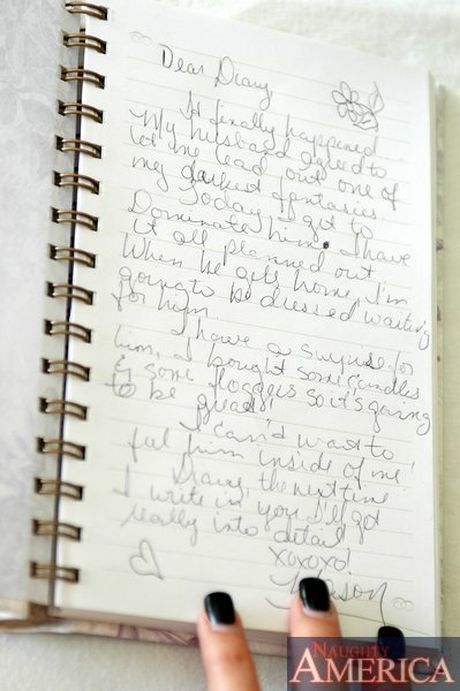 Dear Diary
It finally happened...
My husband agreed to
let me lead out one of
my darkest fantasies.
Today I get to
Dominate him. I have
it all planned out.
When he gets home, I'm
going to be dressed waiting
for him.
I have a surprise for
him, I bought some candles
& some floggers so it's going
to be great!
I can't wait to
feel him inside of me!
Diary, the next time
I write in you I'll get
really into detail
xoxoxo!
NAUGHTY
AMERICA